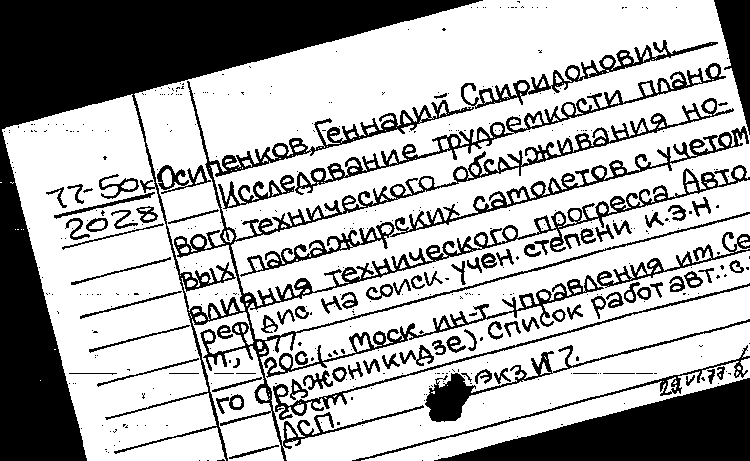 77-50к
2028
Осипенков, Геннадий Спиридонович.
Исследование трудоемкости плано-
вого технического обслуживания но-
вых пассажирских самолетов с учетом
влияния технического прогресса. Авто
реф дис. на соиск. учен. степени к.э.н.
М., 1977.
20с. (... Моск. ин-т управления им. Се
го Орджоникидзе). Список работ авт.: с.
20ст.
ДСП.
экз И 7.
29 VI. 77.